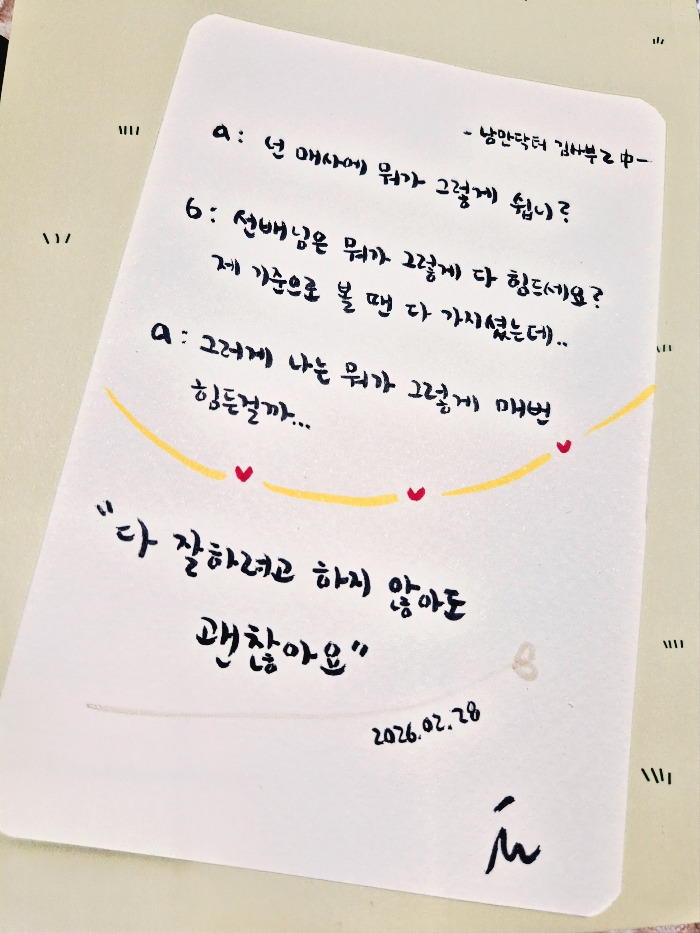 - 낭만닥터 김사부2 中 -
a: 넌 매사에 뭐가 그렇게 쉽니?
b: 선배님은 뭐가 그렇게 다 힘드세요?
제 기준으로 볼 땐 다 가지셨는데..
a: 그러게 나는 뭐가 그렇게 매번
힘든걸까...
"다 잘하려고 하지 않아도
괜찮아요"
2026.02.28